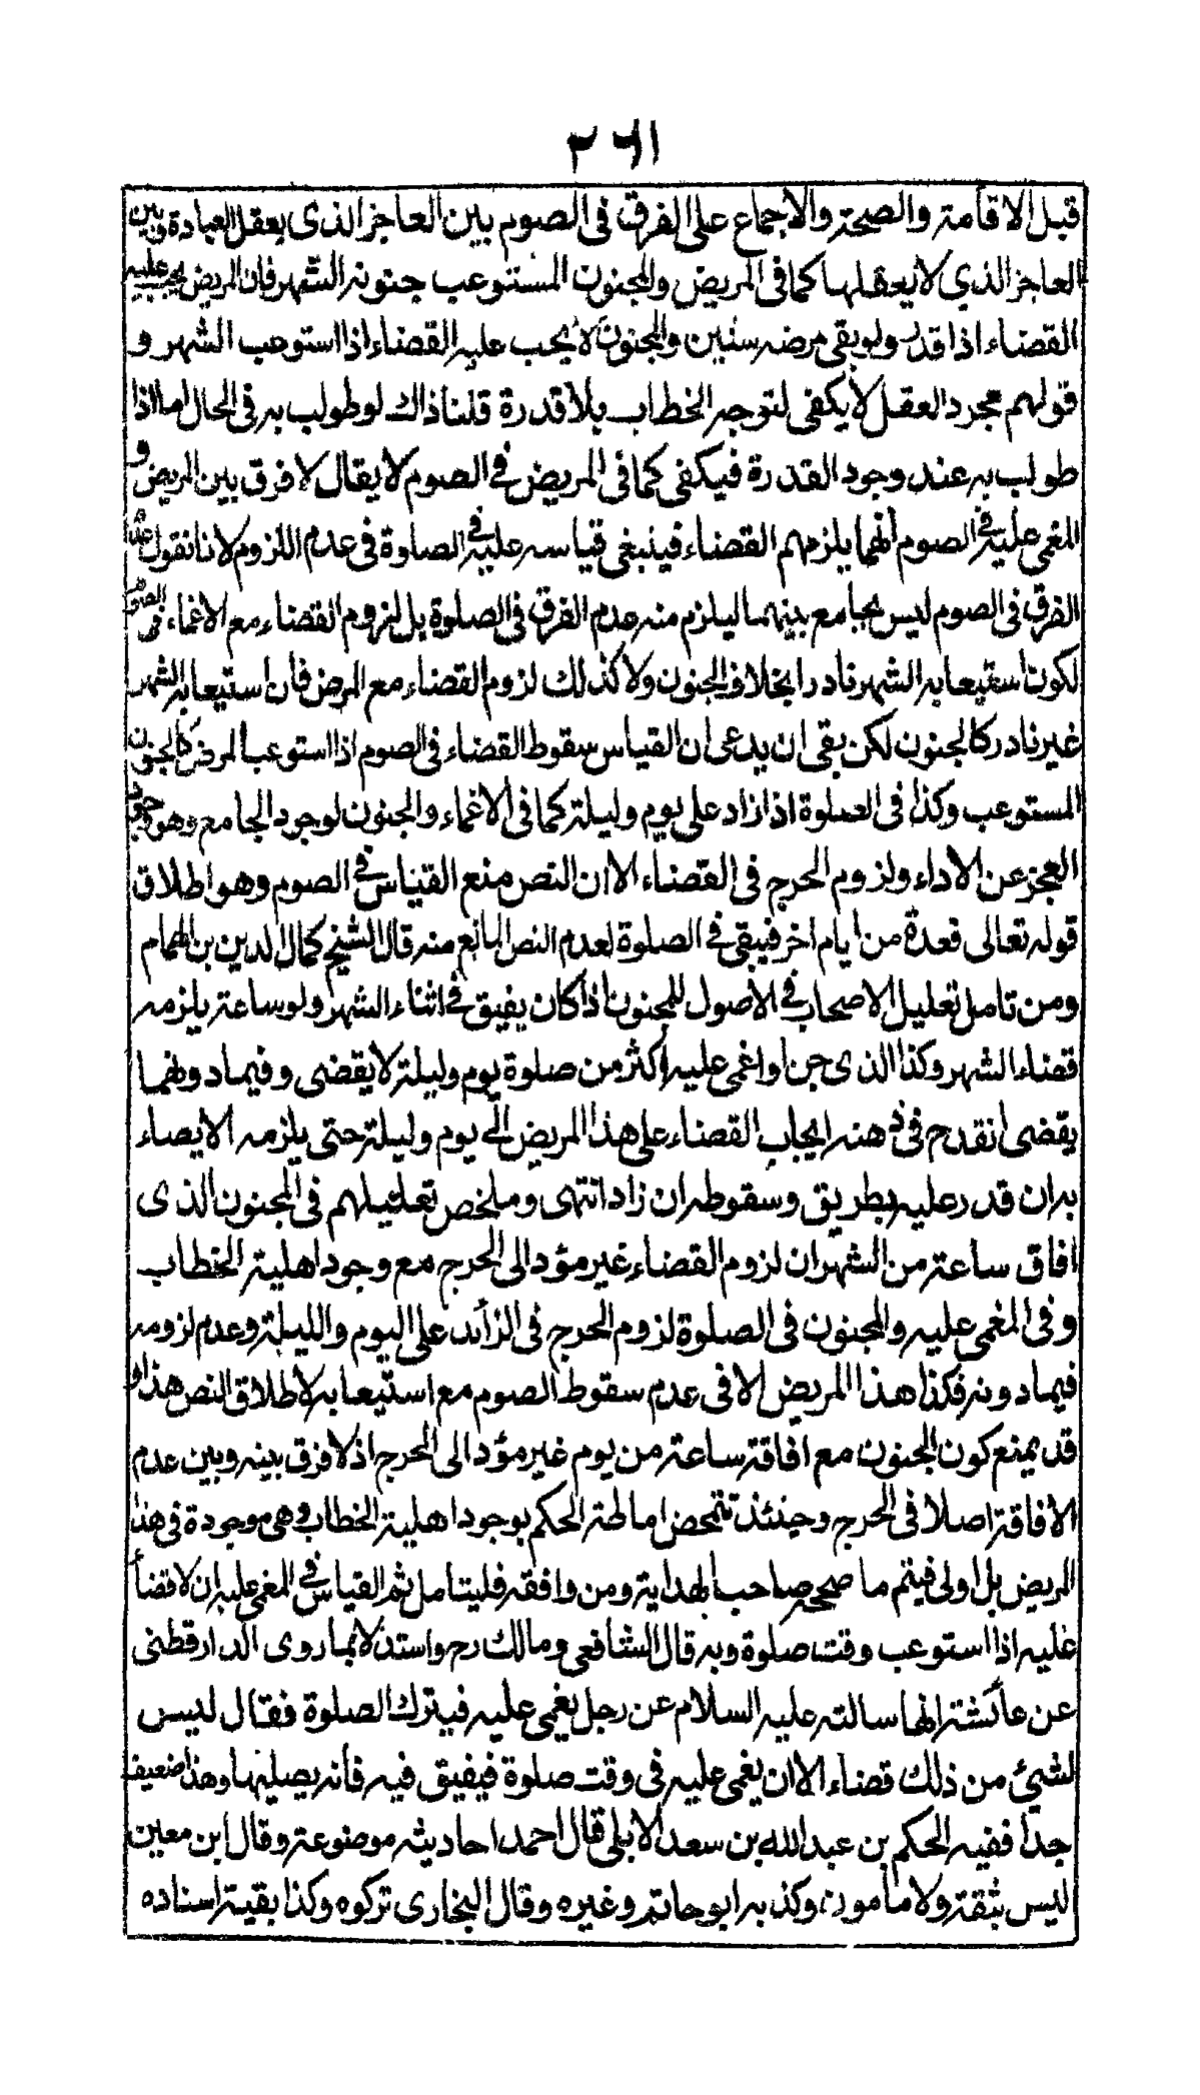 ٢٦١
قبل الاقامة والصحة والاجماع على الفرق فى الصوم بين العاجز الذى يعقل العبادة وبين
العاجز الذي لا يعقلها كما فى المريض والمجنون المستوعب جنونه الشهر فان المريض يجب عليه
القضاء اذا قدر ولو بقى مرضه سنين والمجنون لا يجب عليه القضاء اذا استوعب الشهر و
قولهم مجرد العقل لا يكفى لتوجه الخطاب بلا قدرة قلنا ذاك لو طولب به فى الحال اما اذا
طولب به عند وجود القدرة فيكفى كما فى المريض في الصوم لا يقال لا فرق بين المريض و
المغمى عليه في الصوم انهما يلزمهم القضاء فينبغى قياسه عليه في الصلوة فى عدم اللزوم لانا نقول عدم
الفرق فى الصوم ليس بجامع بينهما ليلزم منه عدم الفرق فى الصلوة بل لزوم القضاء مع الاغماء فى الصوم
لكون استيعابه الشهر نادرا بخلاف الجنون ولا كذلك لزوم القضاء مع المرض فان استيعابه الشهر
غير نادر كالجنون لكن بقى ان يدعى ان القياس سقوط القضاء فى الصوم اذا استوعب المرض كالجنون
المستوعب وكذا فى الصلوة اذا زاد على يوم وليلة كما فى الاغماء والجنون لوجود الجامع وهو وجود
العجز عن الاداء ولزوم الحرج فى القضاء الا ان النص منع القياس في الصوم وهو اطلاق
قوله تعالى فعدة من ايام اخر فيبقى في الصلوة لعدم النص المانع منه قال الشيخ كمال الدين بن الهمام
ومن تامل تعليل الاصحاب في الاصول للمجنون اذا كان يفيق في اثناء الشهر ولو ساعة يلزمه
قضاء الشهر وكذا الذى جن او اغمى عليه اكثر من صلوة يوم وليلة لا يقضى وفيما دونهما
يقضى انقدح فى ذهنه ايجاب القضاء على هذا المريض الى يوم وليلة حتى يلزمه الايصاء
به ان قدر عليه بطريق وسقوطه ان زاد انتهى وملخص تعليلهم فى المجنون الذى
افاق ساعة من الشهر ان لزوم القضاء غير مؤد الى الحرج مع وجود اهلية الخطاب
وفى المغمى عليه والمجنون فى الصلوة لزوم الحرج فى الزائد على اليوم والليلة وعدم لزومه
فيما دونه فكذا هذا المريض الا فى عدم سقوط الصوم مع استيعابه لاطلاق النص هذا و
قد يمنع كون الجنون مع افاقة ساعة من يوم غير مؤد الى الحرج اذ لا فرق بينه وبين عدم
الافاقة اصلا فى الحرج وحينئذ تتمحض احالة الحكم بوجود اهلية الخطاب وهى موجودة فى هذا
المريض بل اولى فيتم ما صححه صاحب الهداية ومن وافقه فليتامل ثم القياس في المغمى عليه ان لا قضأ
عليه اذا استوعب وقت صلوة وبه قال الشافعى ومالك رح واستدلا بما روى الدارقطنى
عن عائشة انها سالته عليه السلام عن رجل يغمى عليه فيترك الصلوة فقال ليس
لشيئ من ذلك قضاء الا ان يغمى عليه فى وقت صلوة فيفيق فيه فانه يصليها وهذا ضعيف
جدا ففيه الحكم بن عبد الله بن سعد الايلى قال احمد احاديثه موضوعة وقال ابن معين
ليس بثقة ولا مامون وكذبه ابو حاتم وغيره وقال البخارى تركوه وكذا بقية اسناده